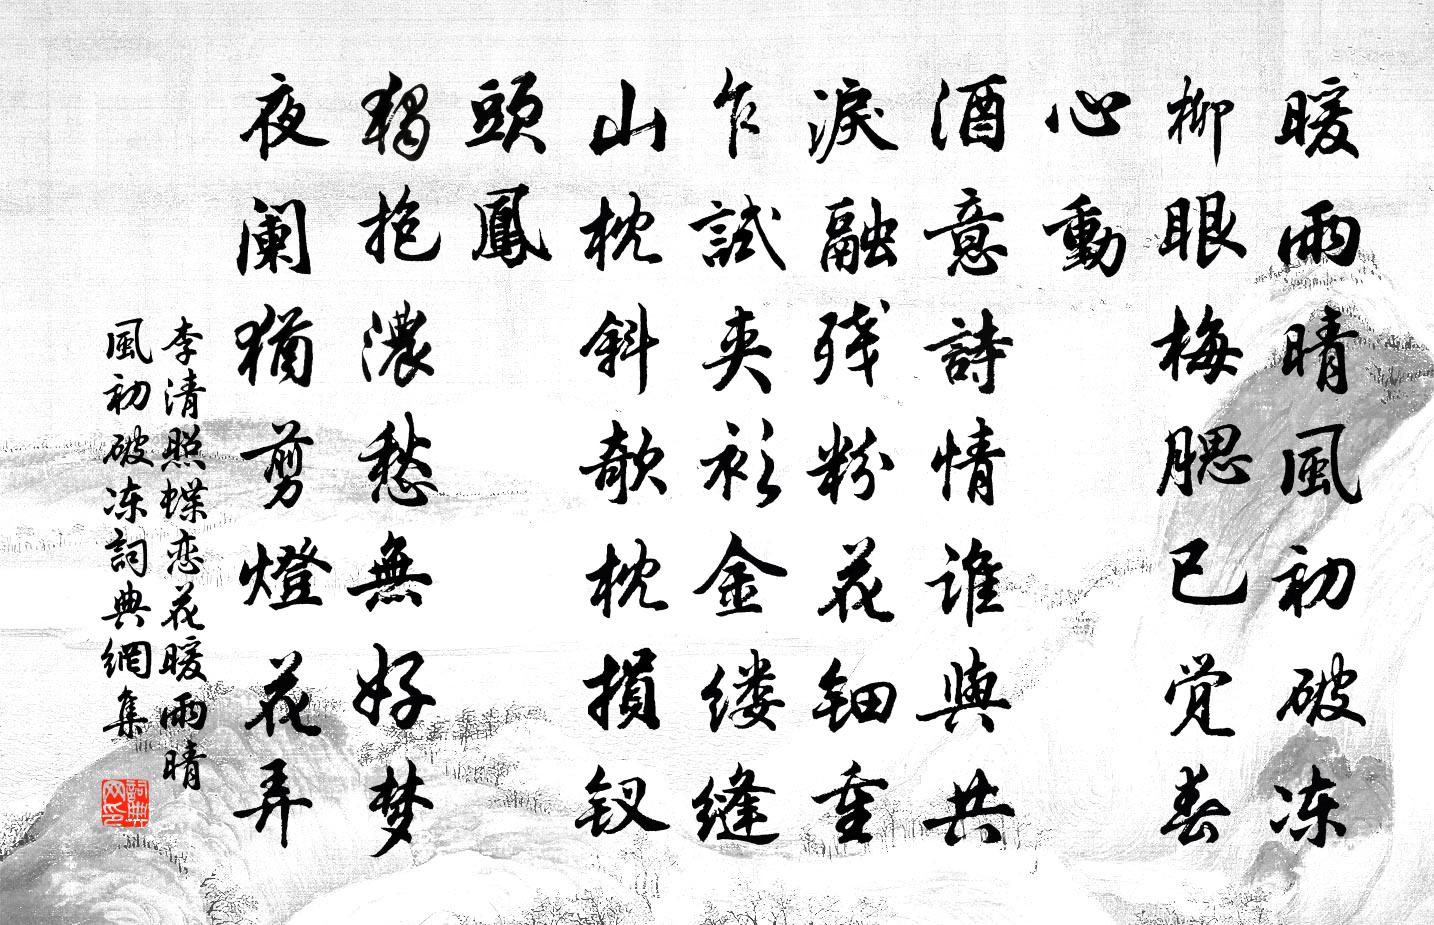 暖雨晴風初破冻
柳眼梅腮已觉春
心動
酒意詩情谁與共
淚融残粉花钿重
乍試夹衫金缕缝
山枕斜欹枕損钗
頭鳳
獨抱濃愁無好梦
夜阑猶剪燈花弄
李清照蝶恋花暖雨晴
風初破冻詞典網集
詞典网印